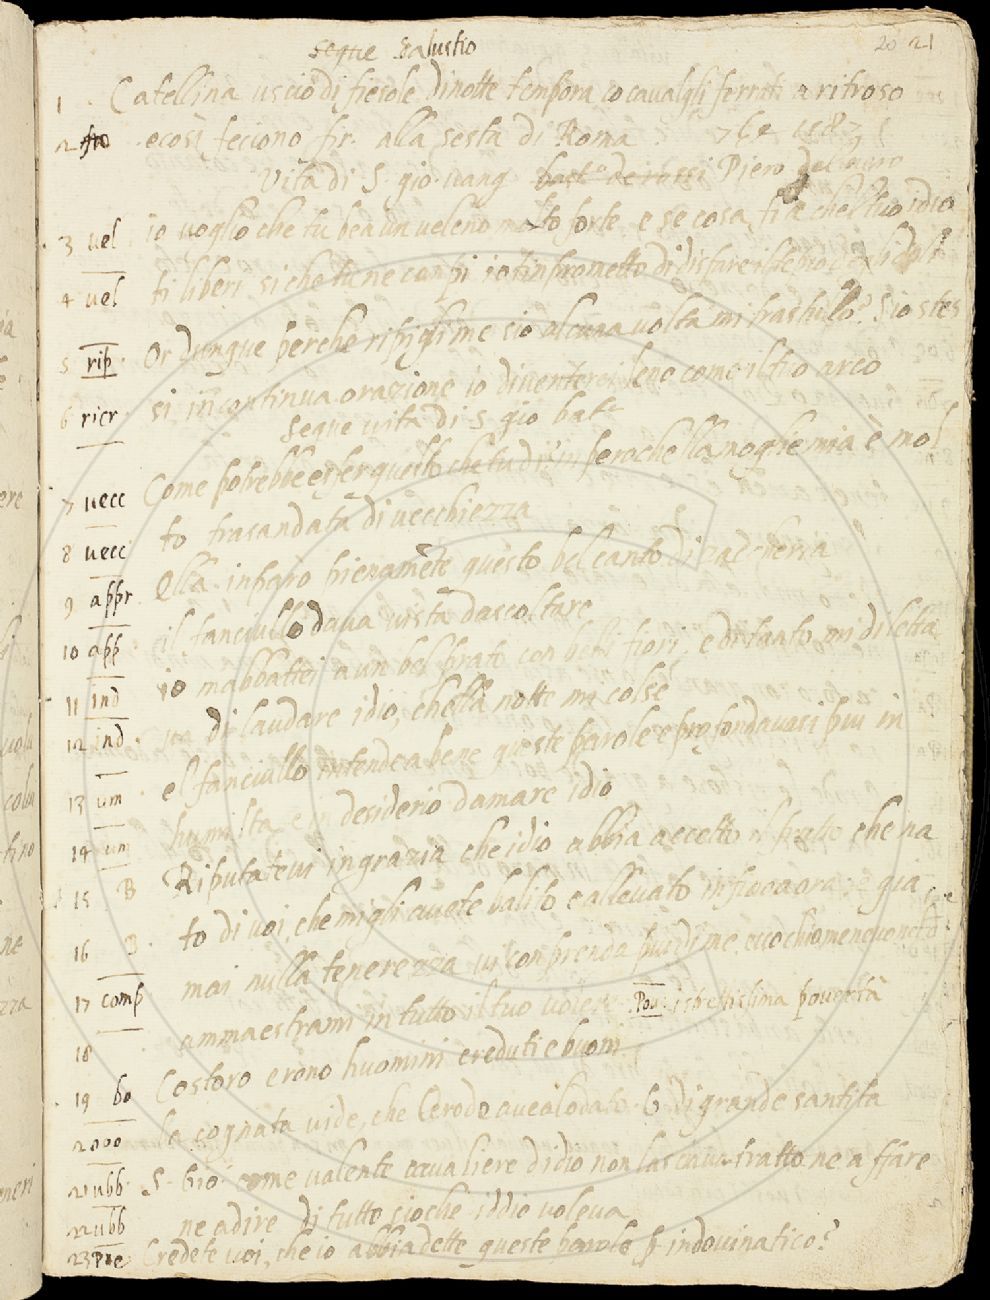 segue Salustio
20 21
1 Catellina uscio di fiesole di notte tempora co cavalgli ferrati a ritroso
2 ecosi feciono fir. alla sesta di Roma
Vita di S. gio. uang Piero
3 vel io voglio che tu bea un veleno molto forte e se cosa fia chel tuo idio
4 vel ti liberi si che tu ne canpi io
5 rip Or dunque perche ripigli me s'io alcuna volta mi trastullo? S'io stes
6 ricr si in continua orazione io diventerei leve come il tio arco
segue vita di S. gio bat.
7 vecc Come potrebbe esser questo che tu di in pero che lla moglie mia è mol
8 vecc to trasandata di vecchiezza
9 appr Ella inparo pienamete questo bel canto di
10 app il fanciullo dava vista dascoltare
11 ind io mabbattei a un bel prato con belli fiori, e di tanto mi diletta
12 ind va di laudare idio, chella notte mi colse
13 um el fanciullo intendea bene queste parole e profondavasi piu in
14 um humilta e in desiderio damare idio
15 B Riputatevi in grazia che idio abbia accetto il frutto che na
16 B to di voi, che mi gli avete balito e allevato infino a ora, e gia
17 comp mai nulla tenerezza vi conprenda piu di me
18 ammaestrami in tutto il tuo volere Pov: ispettissima povertà
19 bo Costoro erono huomini creduti e buoni
20 la cognata vide, che Erode avea lodato G di grande santita
21 ubb S. Gio come valente cavaliere didio non lasciava fratto ne a ffare
22 ubb ne a dire di tutto cioche iddio voleva
23 Pre Credete voi, che io abbia dette queste parole p indovinatico?